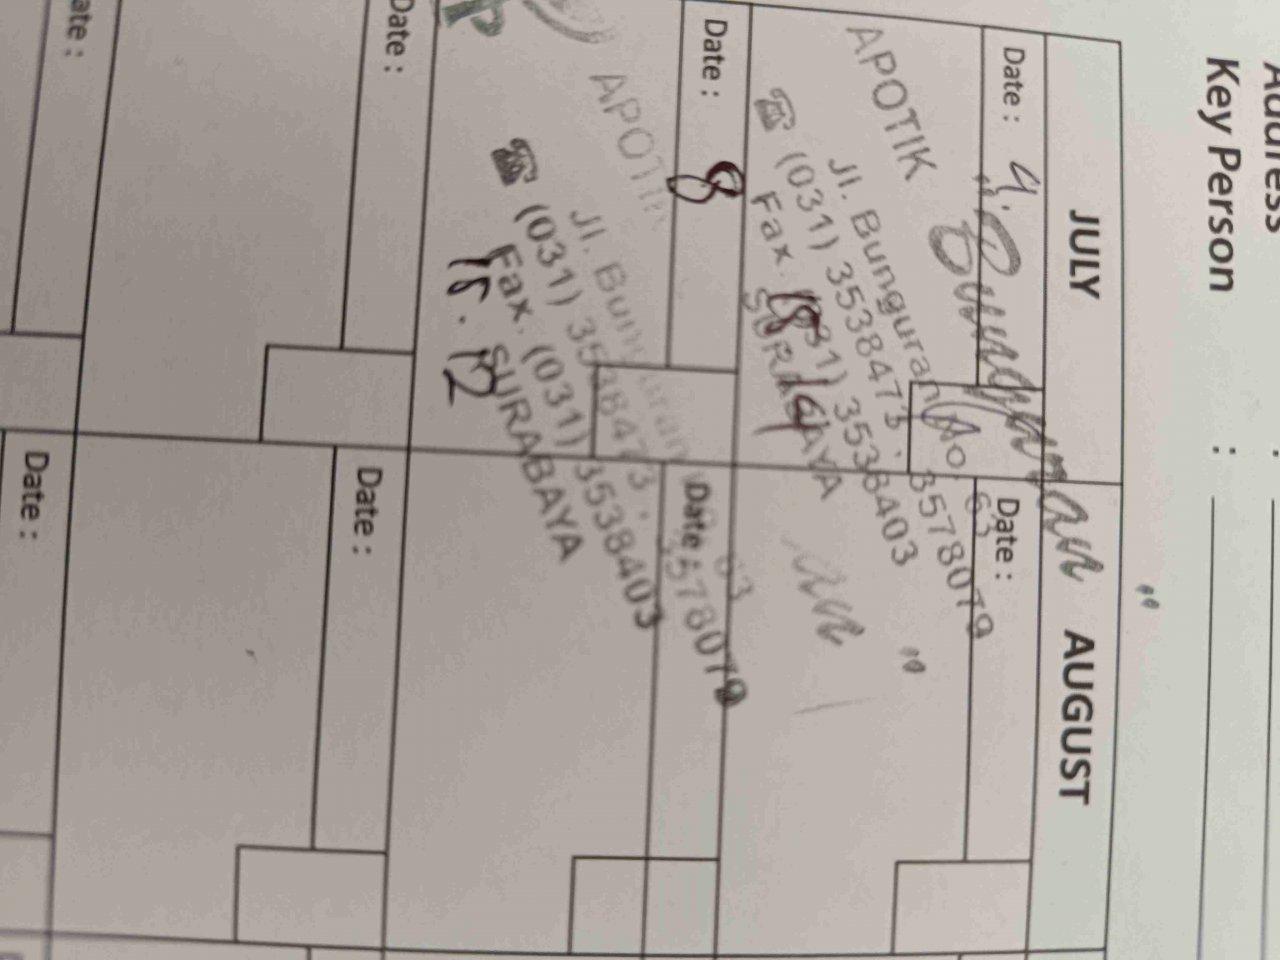 Address
Key Person : 
JULY AUGUST
Date : 4. Date :
APOTIK
Jl. Bunguran No. 63
(031) 3538473 . 3578079
Fax. (031) 3538403
SURABAYA
Date : 8 Date :
APOTIK
Jl. Bunguran 63
(031) 3538473 . 3578079
Fax. (031) 3538403
SURABAYA
Date : Date :
ate : Date :